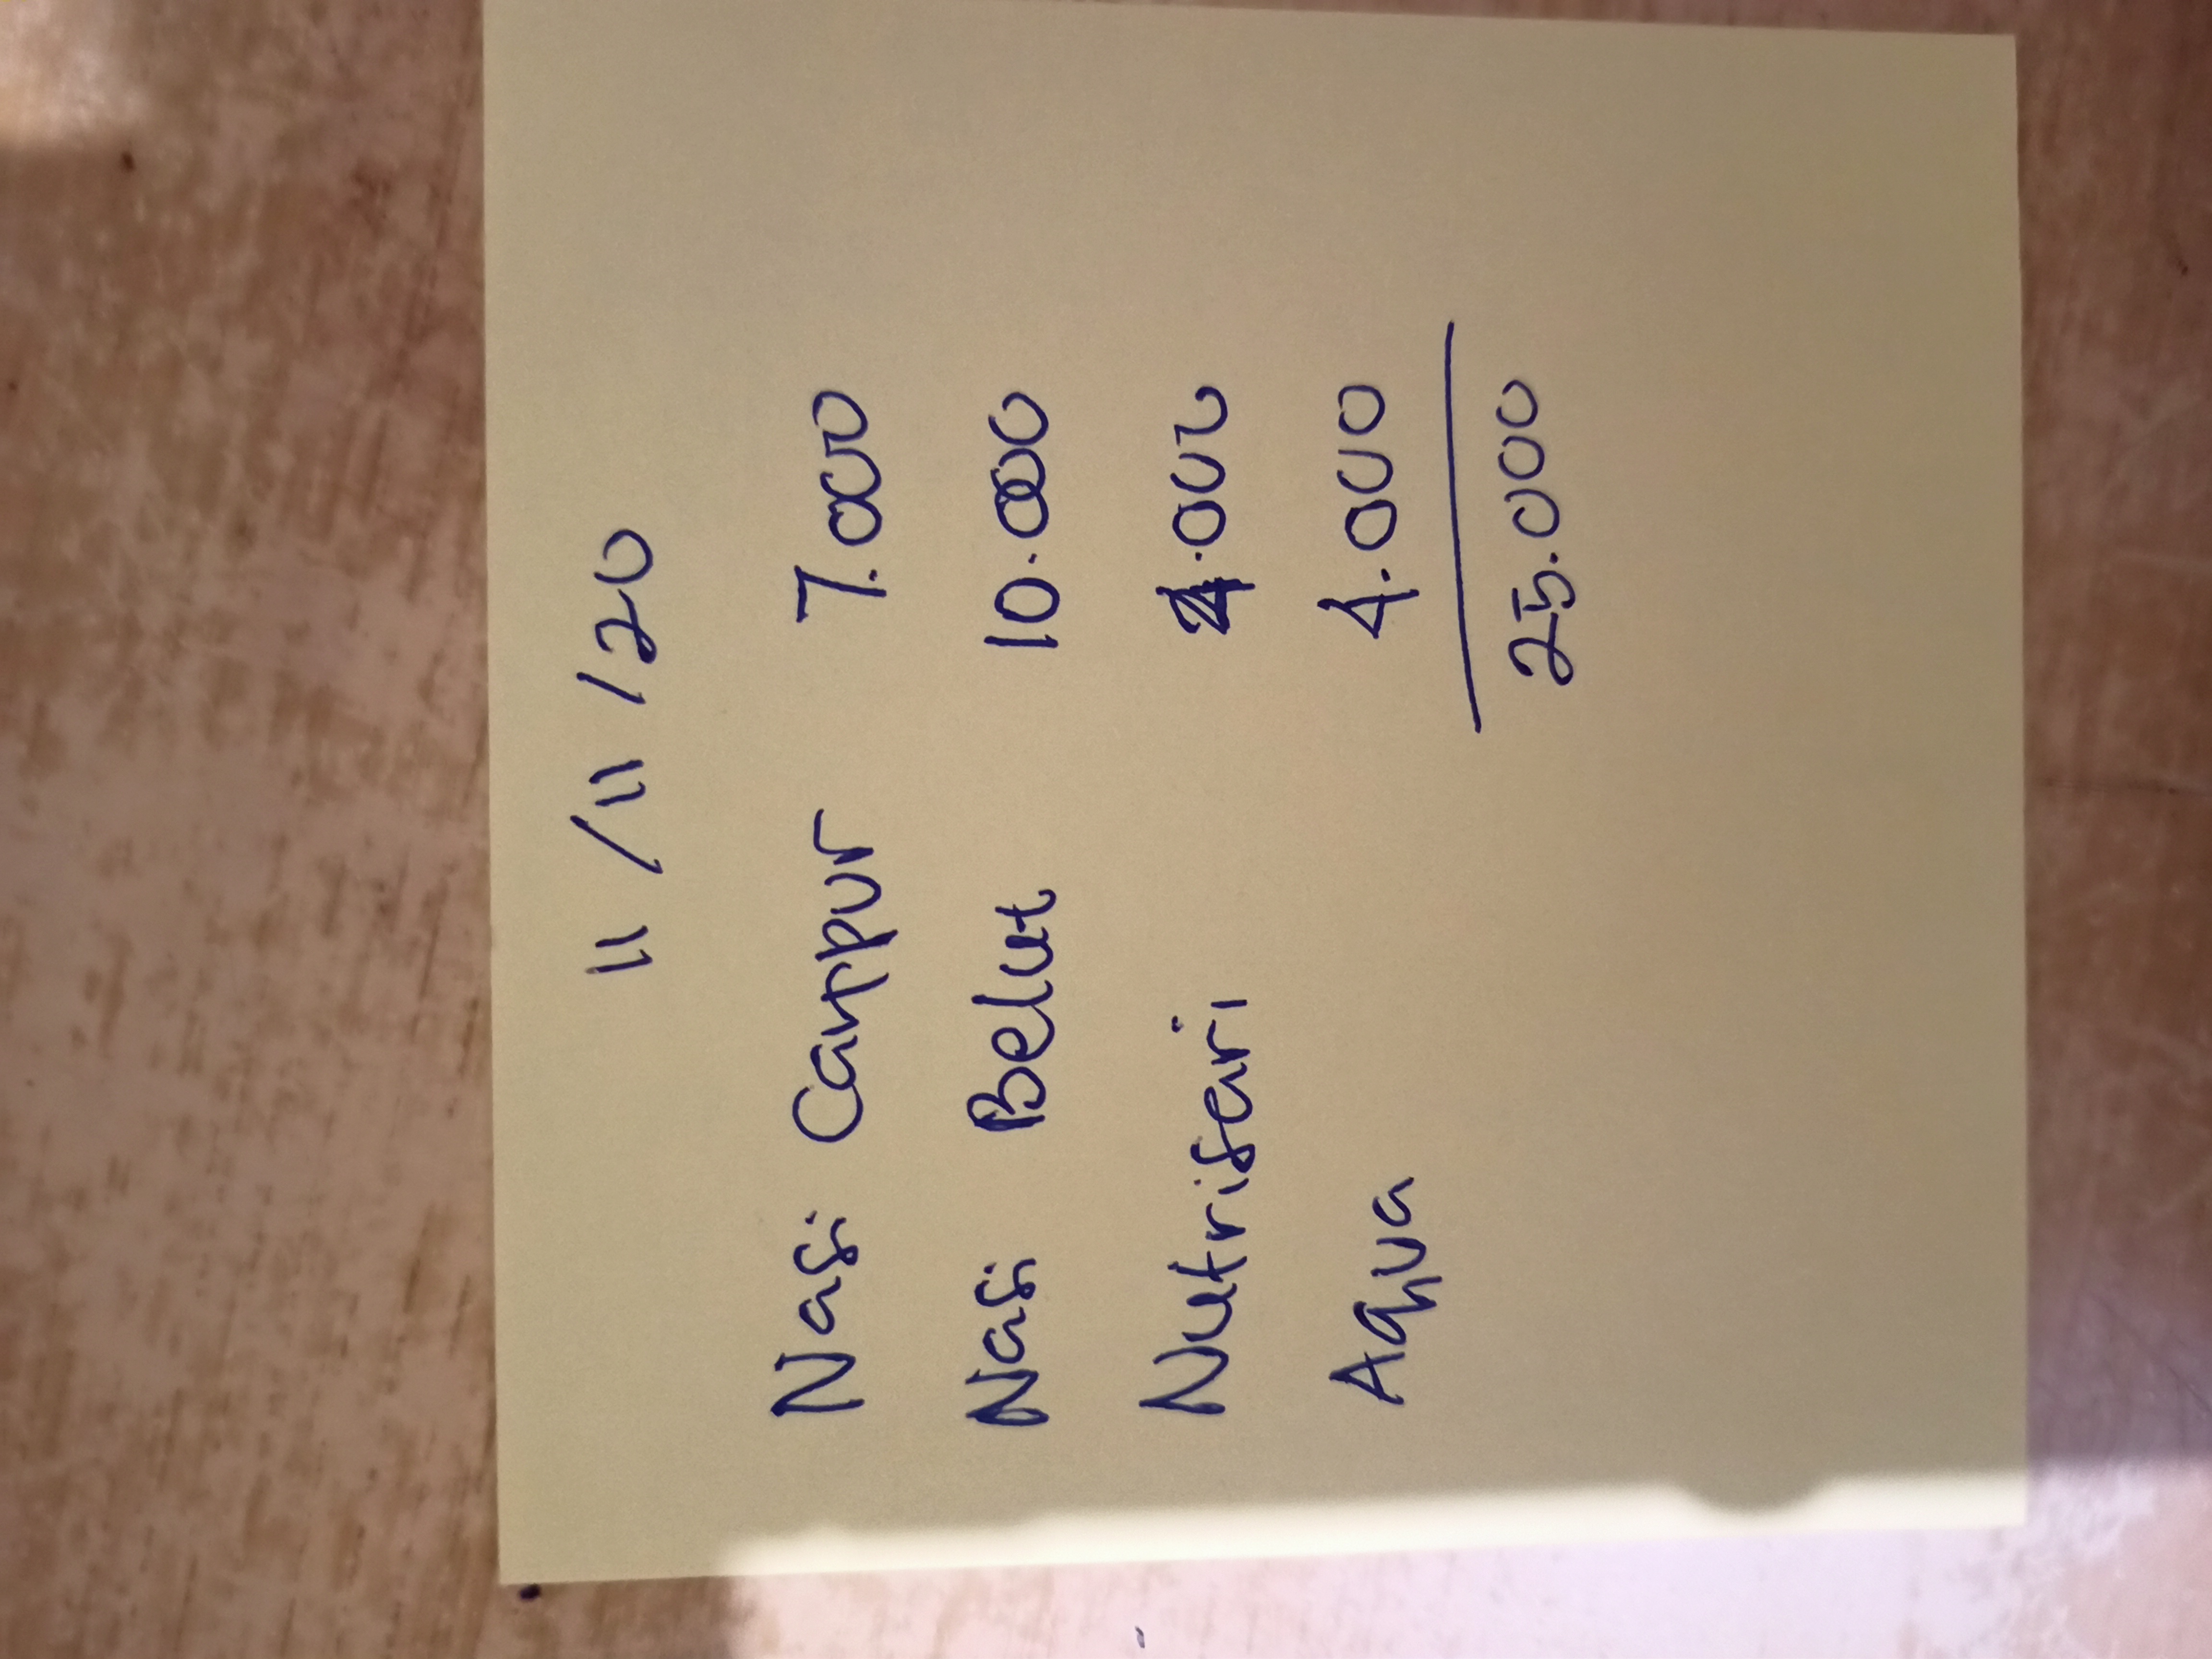 11/11/20
Nasi Campur 7.000
Nasi Belut 10.000
Nutrisari 4.000
Aqua 4.000
25.000